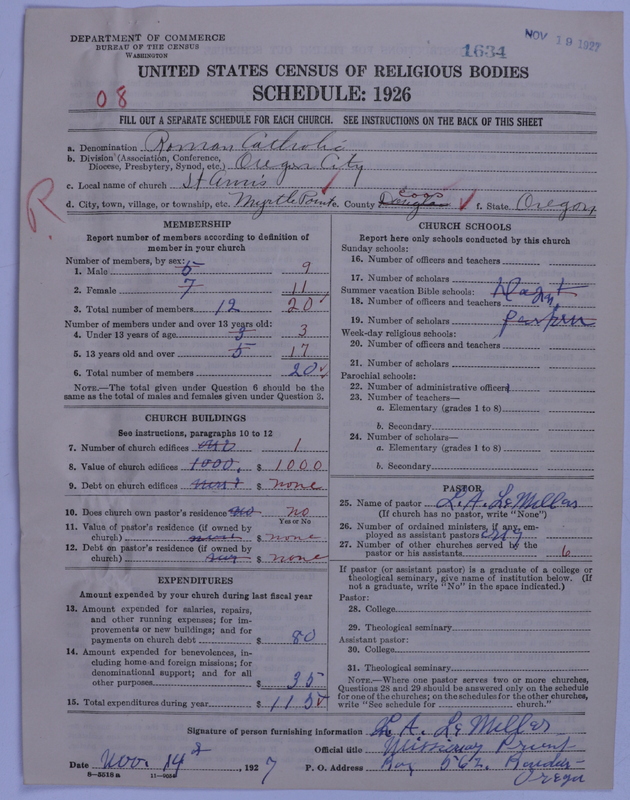 DEPARTMENT OF COMMERCE
BUREAU OF THE CENSUS
WASHINGTON
1634
NOV 19 1927
UNITED STATES CENSUS OF RELIGIOUS BODIES
SCHEDULE: 1926
08
FILL OUT A SEPARATE SCHEDULE FOR EACH CHURCH. SEE INSTRUCTIONS ON THE BACK OF THIS SHEET
a. Denomination Roman Catholic
b. Division (Association, Conference,
Diocese, Presbytery, Synod, etc.) Oregon City
c. Local name of church St Ann's
d. City, town, village, or township, etc. Myrtle Point e. County Douglas Coos f. State Oregon
R
MEMBERSHIP
Report number of members according to definition of
member in your church
Number of members, by sex:
1. Male 5 9
2. Female 7 11
3. Total number of members 12 20
Number of members under and over 13 years old:
4. Under 13 years of age 3 3
5. 13 years old and over 5 17
6. Total number of members 20
NOTE.—The total given under Question 6 should be the
same as the total of males and females given under Question 3.
CHURCH BUILDINGS
See instructions, paragraphs 10 to 12
7. Number of church edifices 1
8. Value of church edifices 1000. $ 1000
9. Debt on church edifices $ none
10. Does church own pastor's residence no
Yes or No
11. Value of pastor's residence (if owned by
church) $ none
12. Debt on pastor's residence (if owned by
church) $ none
EXPENDITURES
Amount expended by your church during last fiscal year
13. Amount expended for salaries, repairs,
and other running expenses; for im-
provements or new buildings; and for
payments on church debt $ 80
14. Amount expended for benevolences, in-
cluding home and foreign missions; for
denominational support; and for all
other purposes $ 35
15. Total expenditures during year $ 115
CHURCH SCHOOLS
Report here only schools conducted by this church
Sunday schools:
16. Number of officers and teachers
17. Number of scholars
Summer vacation Bible schools:
18. Number of officers and teachers
19. Number of scholars
Week-day religious schools:
20. Number of officers and teachers
21. Number of scholars
Parochial schools:
22. Number of administrative officers
23. Number of teachers—
a. Elementary (grades 1 to 8)
b. Secondary
24. Number of scholars—
a. Elementary (grades 1 to 8)
b. Secondary
PASTOR
25. Name of pastor L. A. Le Miller
(If church has no pastor, write "None")
26. Number of ordained ministers, if any, em-
ployed as assistant pastors
27. Number of other churches served by the
pastor or his assistants 6
If pastor (or assistant pastor) is a graduate of a college or
theological seminary, give name of institution below. (If
not a graduate, write "No" in the space indicated.)
Pastor:
28. College
29. Theological seminary
Assistant pastor:
30. College
31. Theological seminary
NOTE.—Where one pastor serves two or more churches,
Questions 28 and 29 should be answered only on the schedule
for one of the churches; on the schedules for the other churches,
write "See schedule for church."
Signature of person furnishing information L. A. Le Miller
Official title Missionary Priest
Date Nov. 14 , 1927 P. O. Address Box 562. Bandon
Oregon
8—5516 a